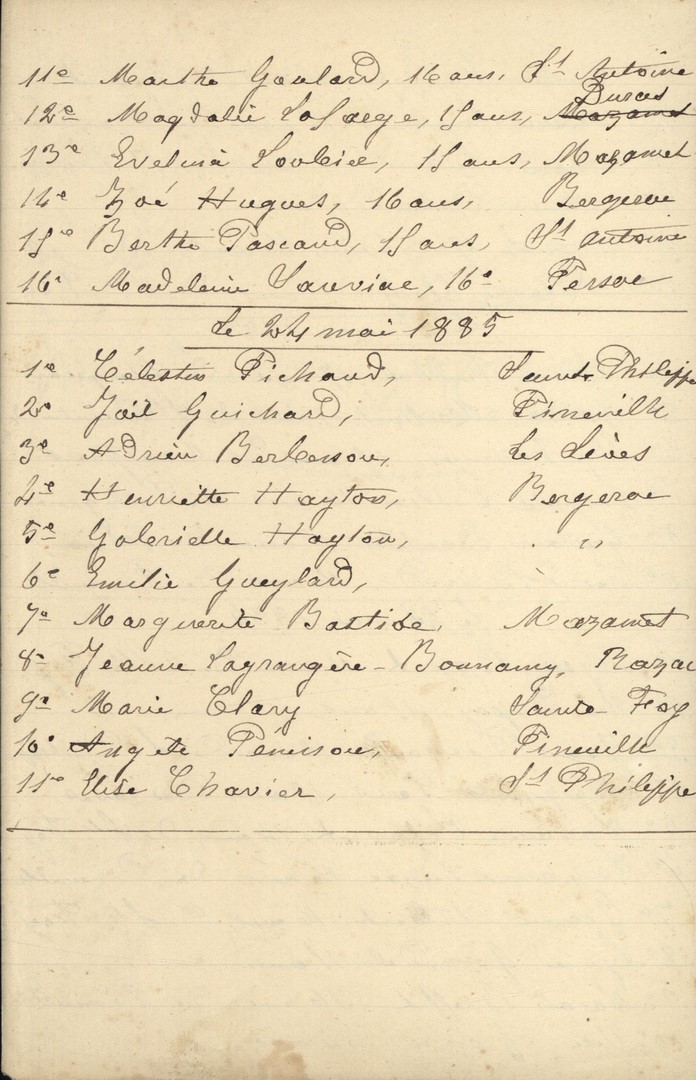 11e Marthe Goulard, 16 ans, St Antoine
Duras
12e Magdalie Lafarge, 15 ans, Mazamet
13e Evelina Loubiere, 15 ans, Mazamet
14e Zoé Hugues, 16 ans, Bergerac
15e Berthe Pascaud, 15 ans, St Antoine
16e Madeleine Sauviac, 16e
Le 24 mai 1885
1e Célestin Pichaud, Sainte Philippe
2e Joël Guichard, Pineuilh
3e Adrien Berberson, Les Lèves
4e Henriette Hayton, Bergerac
5e Gabrielle Hayton, "
6e Emilie Gueylard,
7e Marguerite Bastide, Mazamet
8e Jeanne Lagrangère - Bonnamy, Razac
9e Marie Clary Sainte Foy
10e Angèle Pénisson, Pineuilh
11e Elise Chavier, St Philippe